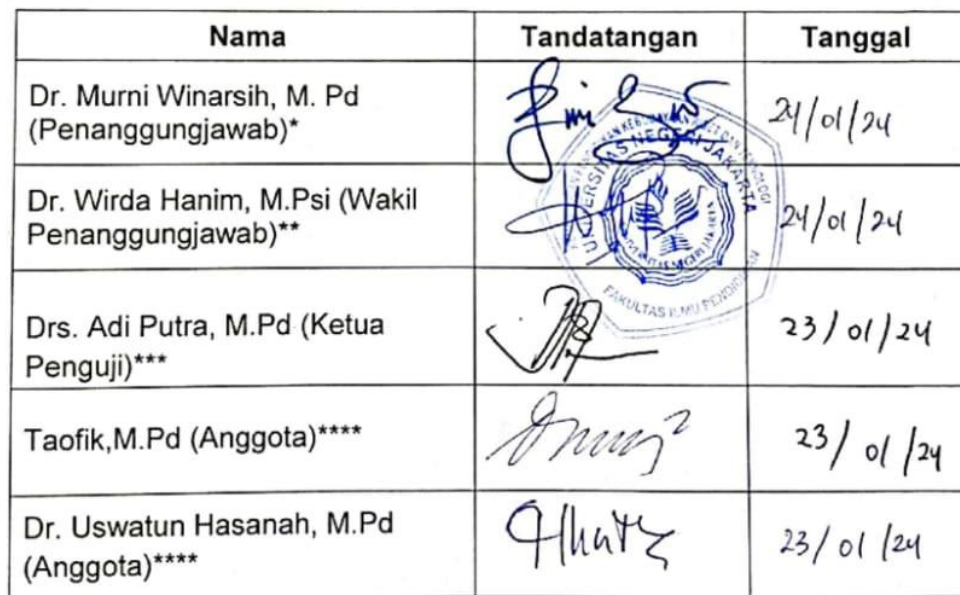 Nama Tandatangan Tanggal
Dr. Murni Winarsih, M. Pd
(Penanggungjawab)* 24/01/24
Dr. Wirda Hanim, M.Psi (Wakil
Penanggungjawab)** 24/01/24
Drs. Adi Putra, M.Pd (Ketua
Penguji)*** 23/01/24
Taofik,M.Pd (Anggota)**** 23/01/24
Dr. Uswatun Hasanah, M.Pd
(Anggota)**** 23/01/24
UNIVERSITAS NEGERI JAKARTA
UNIVERSITAS NEGERI JAKARTA
FAKULTAS ILMU PENDIDIKAN